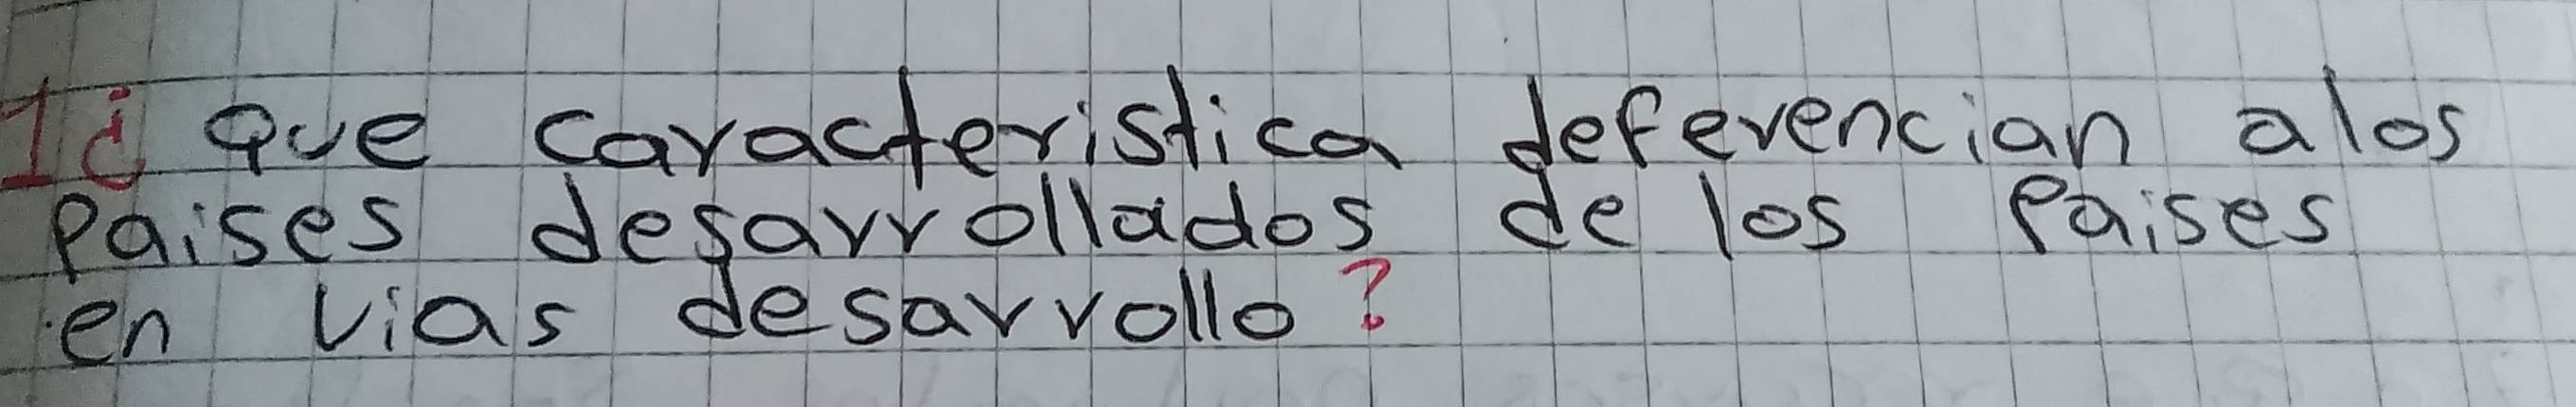 1¿ que caracteristica deferencian alos
Paises desarrollados de los Paises
en vias desarrollo?